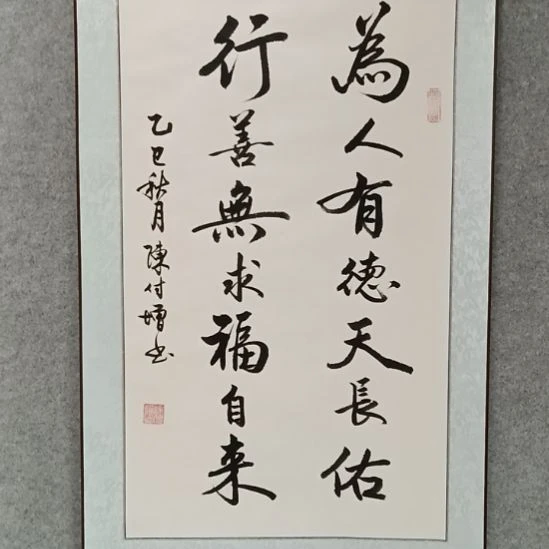 為人有德天長佑
行善無求福自来
乙巳秋月陳付增书